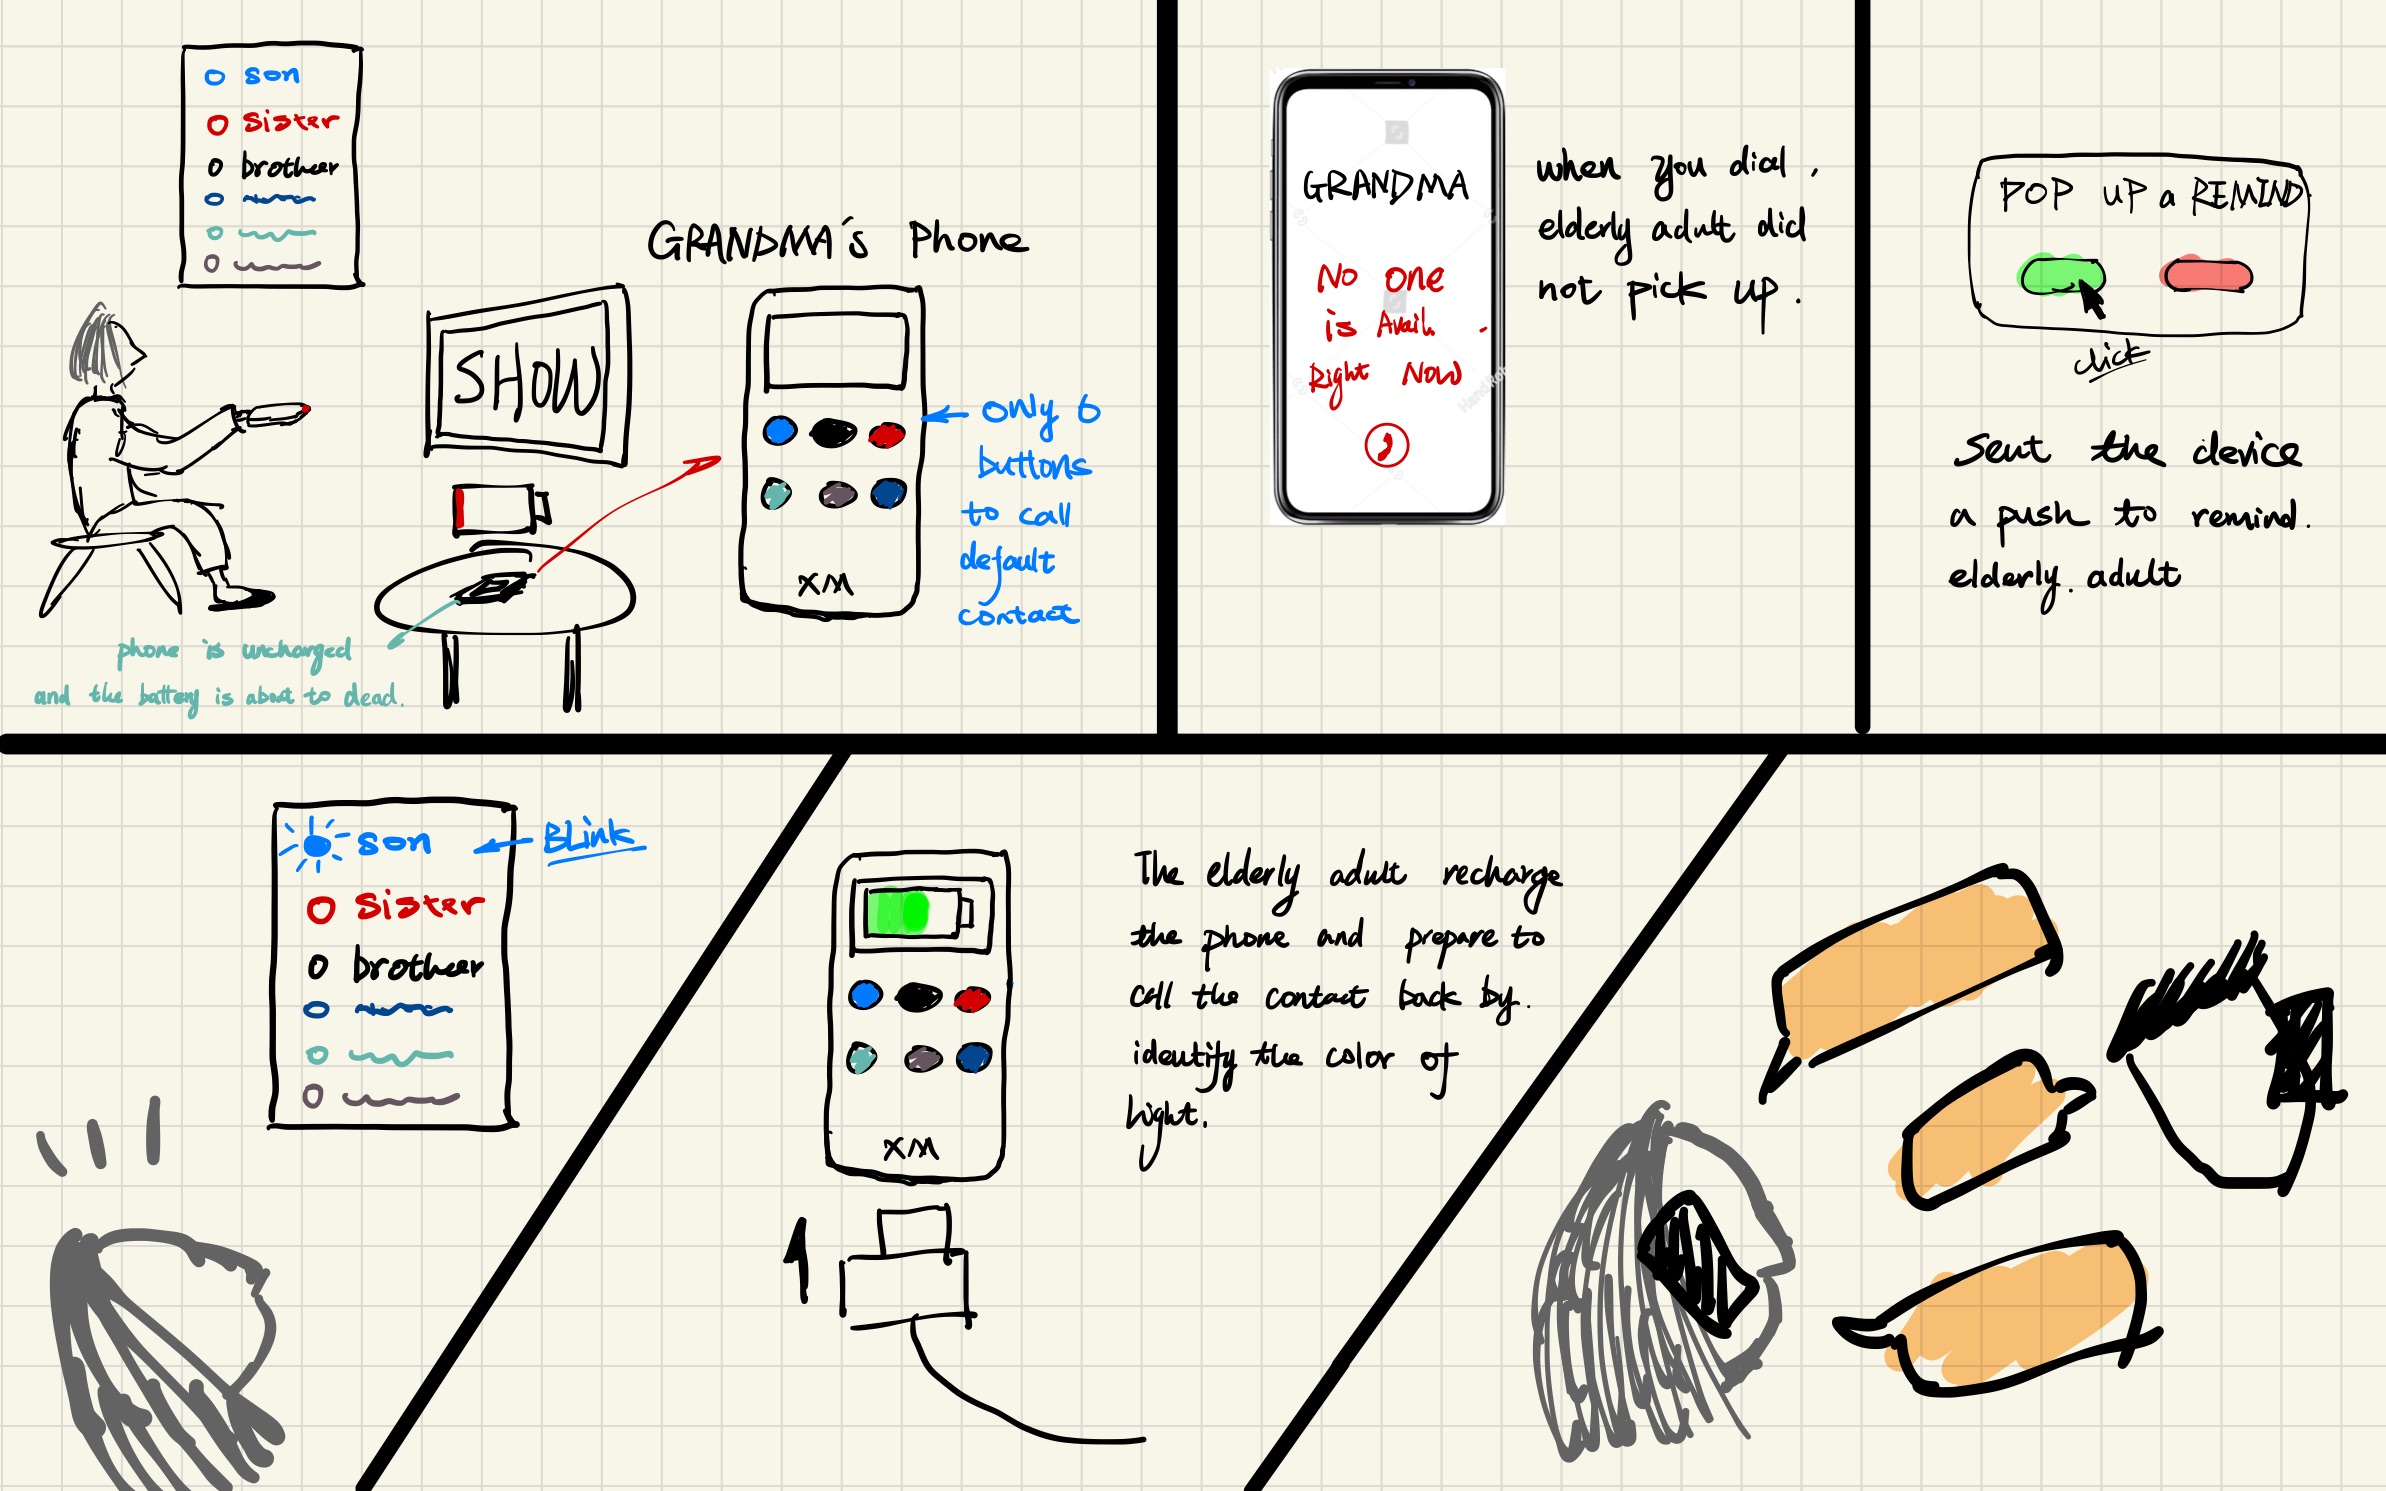 son
sister
brother
GRANDMA's Phone
SHOW
only 6
buttons
to call
default
contact
XM
phone is uncharged
and the battery is about to dead.
GRANDMA
No one
is Avail.
Right Now
when you dial,
elderly adult did
not pick up.
POP UP a REMIND
click
Sent the device
a push to remind.
elderly. adult
son
BLink
sister
brother
XM
The elderly adult recharge
the phone and prepare to
call the contact back by.
identify the color of
light.